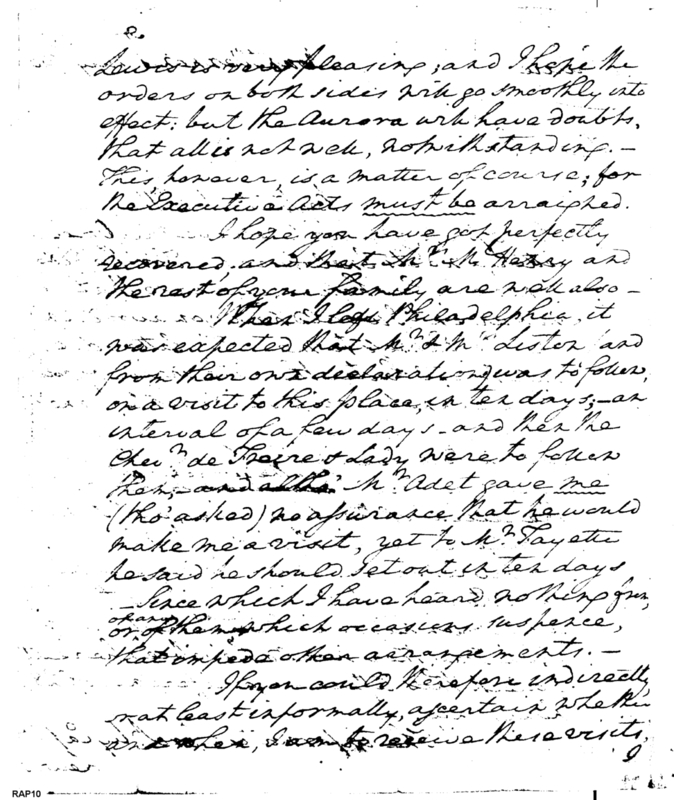 8.
Lewis is very pleasing; and I hope the
orders on both sides will go smoothly into
effect: but the Aurora will have doubts,
that all is not well, notwithstanding. —
This, however, is a matter of course; for
the Executive Acts must be arraigned.
I hope you have got perfectly
recovered and that Mrs. McHenry and
the rest of your family are well also —
When I left Philadelphia, it
was expected that Mr. & Mrs. Liston and
from their own declaration, was to follow,
on a visit to this place, in ten days; — an
interval of a few days — and then the
Chevr. de Freire & Lady were to follow
them; — and altho' Mr. Adet gave me
(tho' asked) no assurance that he would
make me a visit, yet to Mr. Fayette
he said he should set out in ten days
— Since which I have heard nothing from,
or of any
or of them which occasions suspence,
that impede other arrangements. —
If you could therefore indirectly,
or at least informally, ascertain whether
and when, I am to receive these visits,
I
RAP10